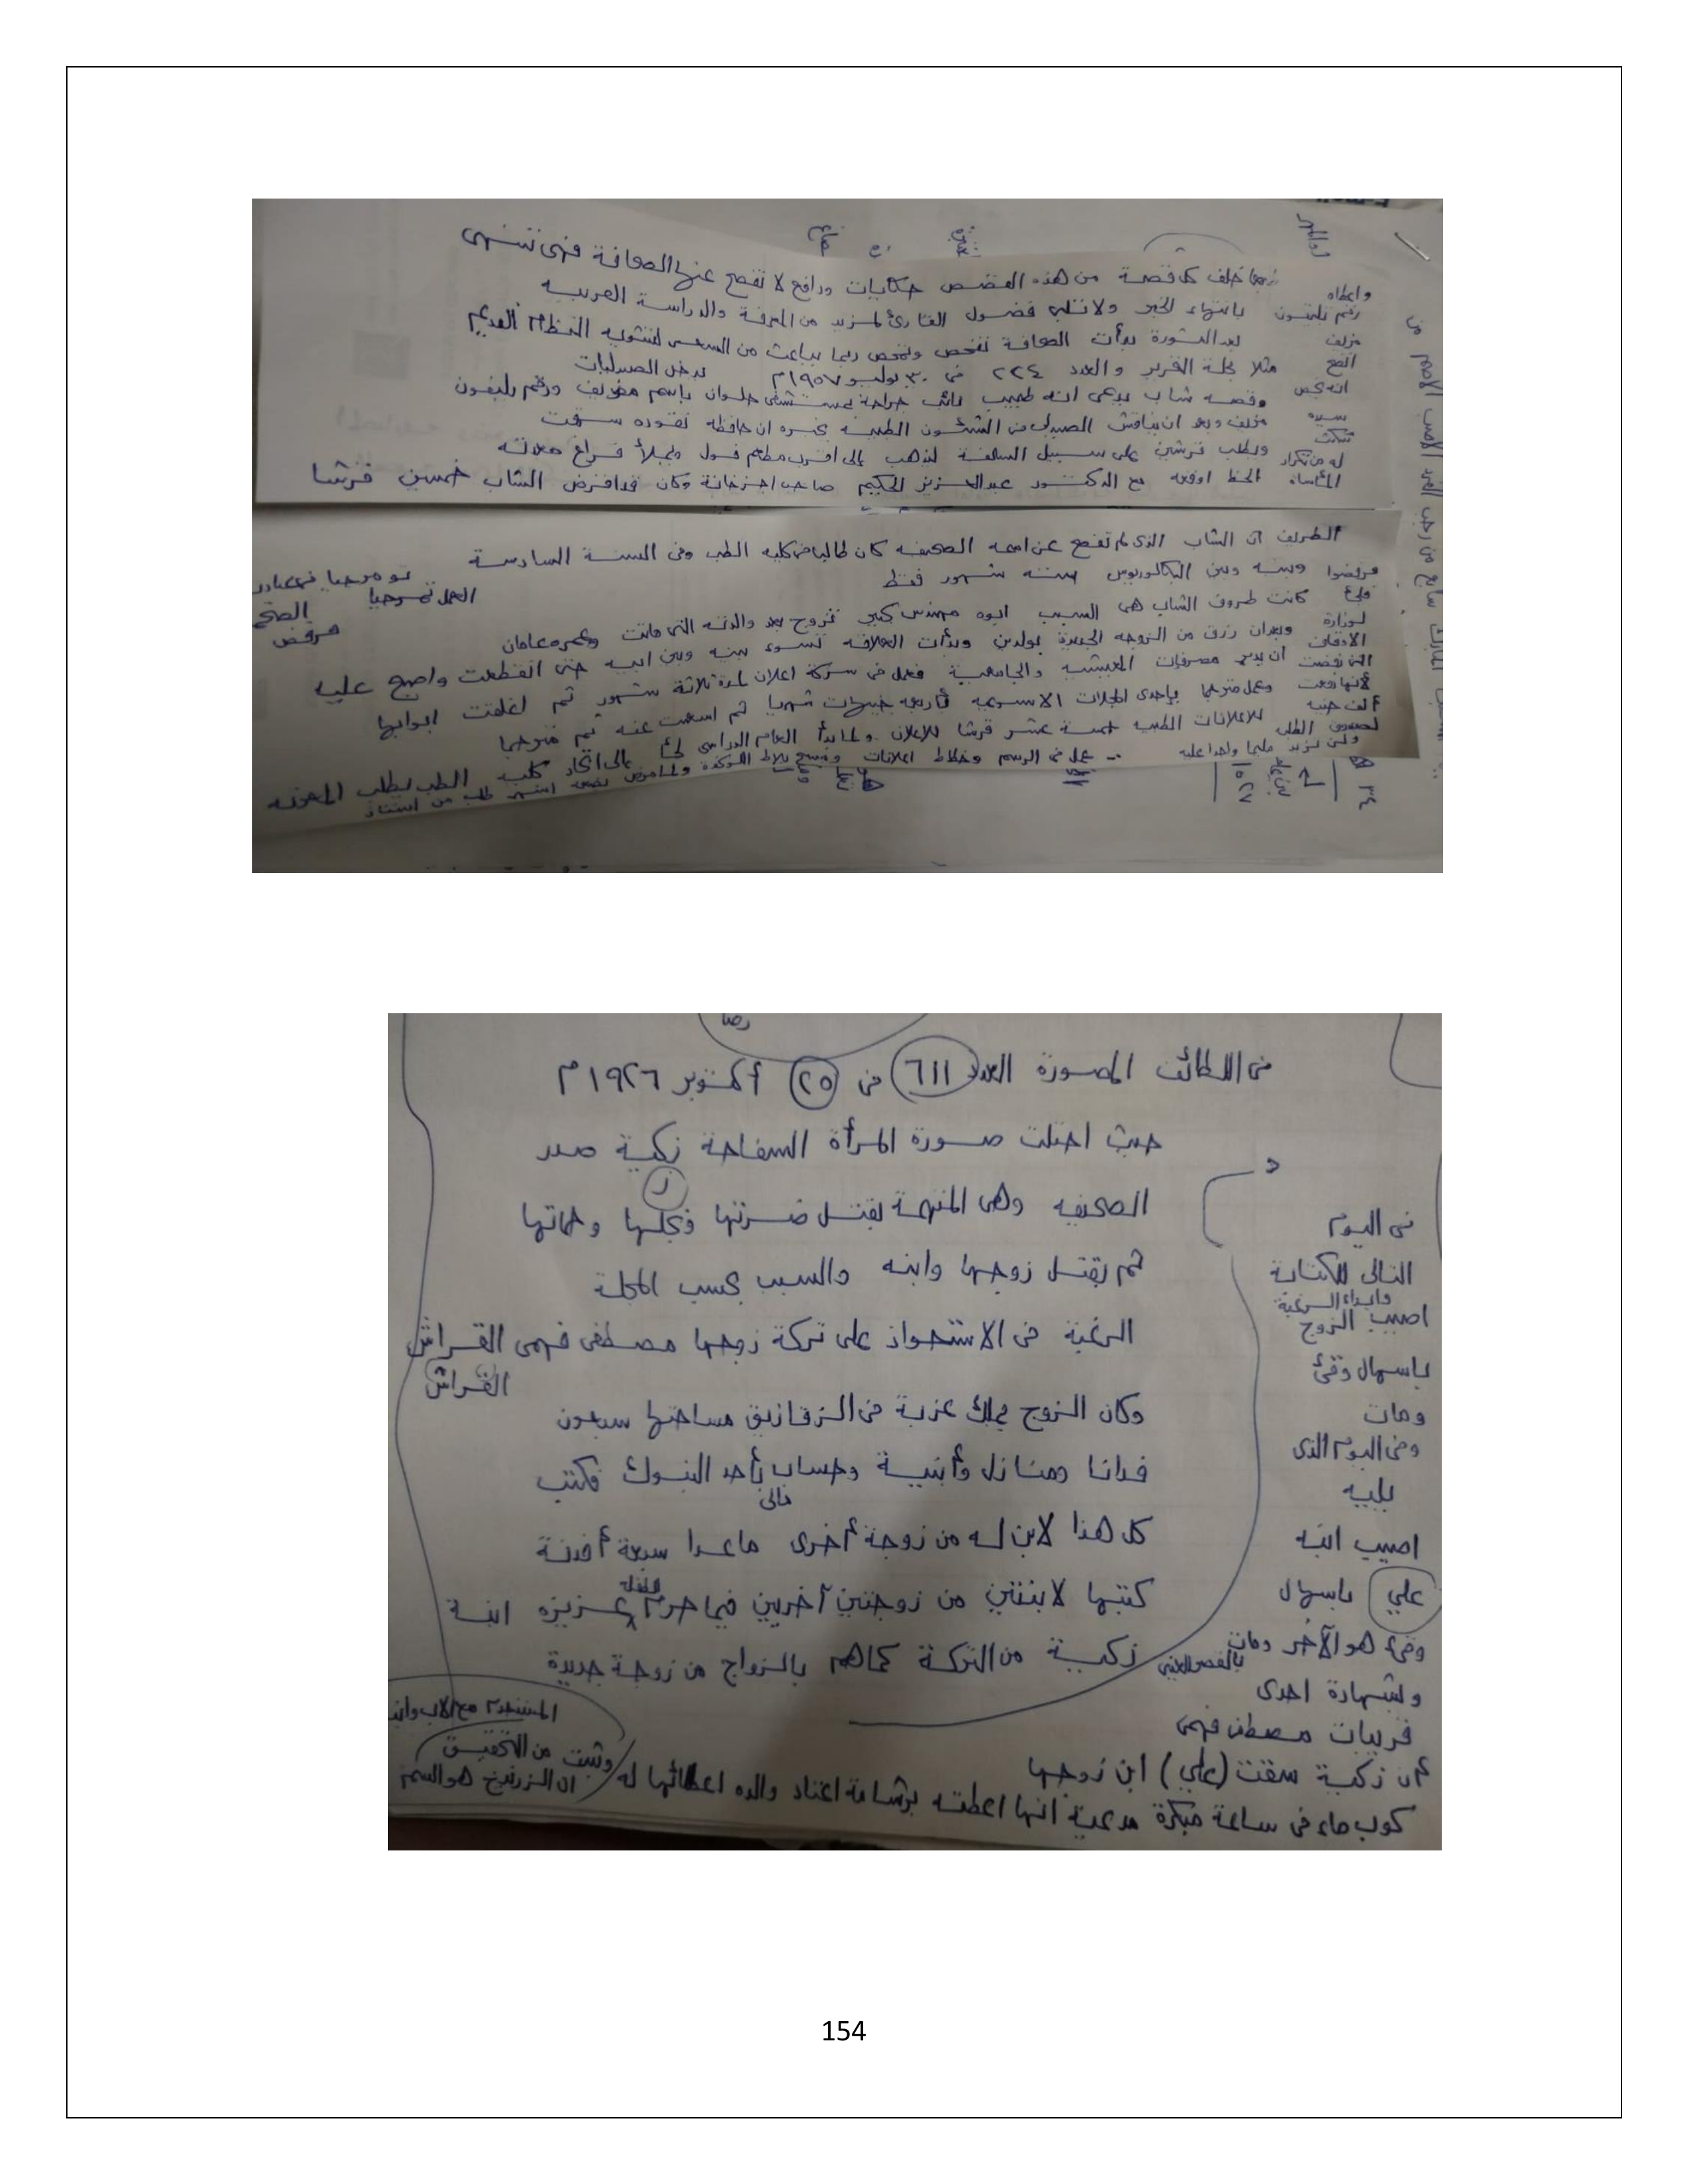 ربما خلف كل قصة من هذه القصص حكايات ودوافع لا تفصح عنها الصحافة فهى تنتهى
بانتهاء الخبر ولا تلبى فضول القارئ لمزيد من المعرفة والدراسة
بعد الثورة بدأت الصحافة تفحص وتمحص ربما بباعث من السعى لتشويه النظام القديم
مثلا مجلة التحرير والعدد ٢٢٤ فى ٣٠ يوليو ١٩٥٧م
يدخل الصيدليات
وقصة شاب يدعى انه طبيب نائب جراحة بمستشفى حلوان باسم مزيف ورقم تليفون
مزيف وبعد ان يناقش الصيدلى فى الشئون الطبية يخبره ان حافظة نقوده سرقت
ويطلب قرشين على سبيل السلفة ليذهب إلى اقرب مطعم فول ويملأ فراغ معدته
الحظ اوقعه مع الدكتور عبدالعزيز الحكيم صاحب اجزخانة وكان قد اقرض الشاب خمسين قرشا
واعطاه
رقم تليفون
مزيف
اتضح
انه يخص
الطريف ان الشاب الذى لم تفصح عن اسمه الصحيفه كان طالبا فى كليه الطب وفى السنة السادسة
وبينه وبين البكالوريوس ستة شهور فقط
كانت ظروف الشاب هى السبب ابوه مهندس كبير تزوج بعد والدته التى ماتت وعمره عامان
وبعدان رزق من الزوجه الجديدة بولدين وبدأت العلاقه تسوء بينه وبين ابيه حتى انقطعت واصبح عليه
ان يدبر مصروفات المعيشه والجامعية فعمل فى شركة اعلان لمدة ثلاثة شهور ثم اغلقت ابوابها
وعمل مترجما بإحدى المجلات الاسبوعيه بأربعه جنيهات شهريا ثم استغنت عنه ثم مترجما
للاعلانات الطبيه خمسة عشر قرشا للاعلان ولما بدأ العام الدراسى لجأ إلى اتحاد كلية الطب يطلب المعونه
عمل فى الرسم وخطاط اعلانات
ولن تزيد مليما واحدا عليه
فى اللطائف المصورة العدد ٦١١ فى ٢٥ أكتوبر ١٩٢٦م
حيث احتلت صورة المرأة السفاحة زكية صدر
الصحيفه وهى المتهمة بقتل ضرتها ونجلها وحماتها
ثم بقتل زوجها وابنه والسبب بحسب المجلة
الرغبة فى الاستحواذ على تركة زوجها مصطفى فهمى القراش
القراش
وكان الزوج يملك عزبة فى الزقازيق مساحتها سبعون
فدانا ومنازل وأبنية وحساب بأحد البنوك فكتب
مالى
كل هذا لابن له من زوجة أخرى ماعدا سبعة أفدنة
كتبها لابنتين من زوجتين آخريين فيما حرم الطفلة عزيزه ابنة
زكية من التركة كما هم بالزواج من زوجة جديدة
فى اليوم
التالى للكتابة
وابداء الرغبة
اصيب الزوج
باسهال وقئ
ومات
وفى اليوم الذى
يليه
اصيب ابنه
علي باسهال
وقئ هو الآخر ومات
وبشهادة احدى
قريبات مصطفى فهمى
أن زكية سقت (علي) ابن زوجها
كوب ماء فى ساعة مبكرة مدعية انها اعطته برشامة اعتاد والده اعطائها له
وثبت من التحقيق
ان الزرنيخ هو السم
المستخدم مع الاب وابنه
154